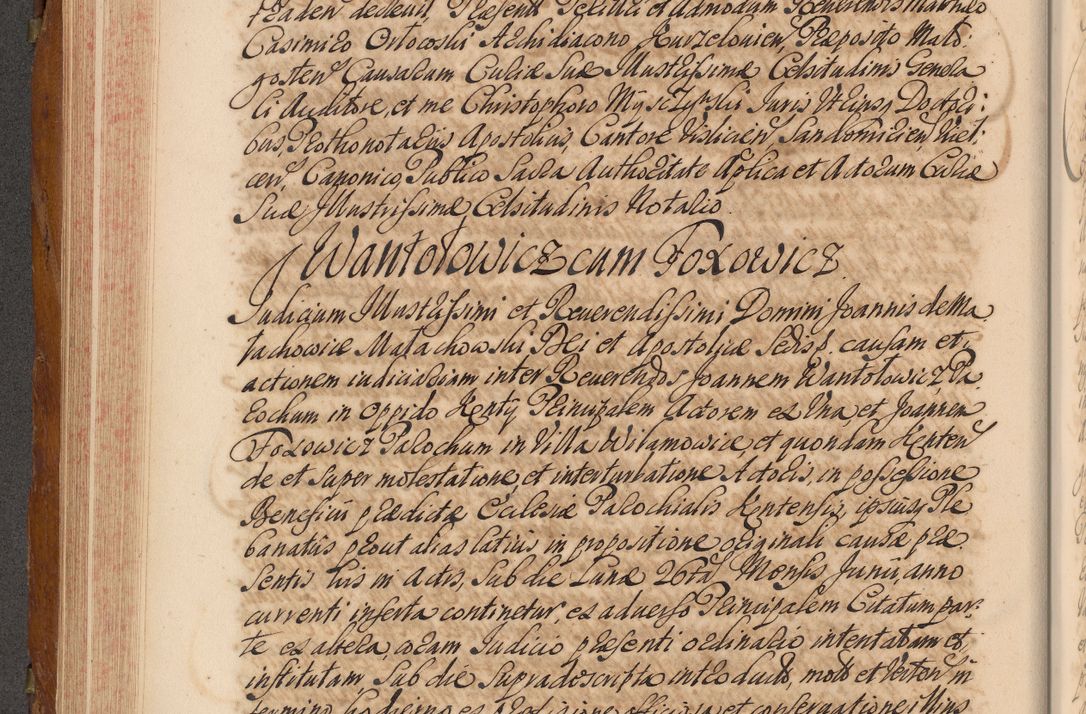 Casimiro Ortowski Archidiacono Kurzelovien, Præposito Mało:
gosten Causarum Curiæ Suæ Illustrissimæ Celsitudinis Genera
li Auditore, et me Christophoro Myszynski Juris Utriusq Doctori:
bus, Prothonotariis Apostolicis, Cantore Vislicien Sandomirien Kiel:
cen, Canonico, Publico Sacra Authoritate Aplica et Actorum Curiæ
Suæ Illustrissimæ Celsitudinis Notario.
Wantołowicz cum Foxowicz
Judicium Illustrissimi et Reverendissimi Domini Joannis de Ma
łachowice Małachowski Dei et Apostolicæ Sedis g. causam et,
actionem iudiciariam inter Reverendos Joannem Wantołowicz Pa
rochum in oppido Kenty Principalem Actorem ex Una, et Joannem
Foxowicz Parochum in Villa Wilamowice et quondam Kenten
de et super molestatione, et interturbatione Actoris, in possessione
Beneficii prædictæ Ecclesiæ Parochialis Kentensis, ipsiusq Ple
banatus prout alias latius in propositione originali causæ præ
sentis huis in Actis, sub die Lunæ 26ta Mensis Junii, anno
currenti inserta continetur, ex adverso Principalem Citatum par:
te ex altera, coram Judicio præsenti ordinario intentatam et,
institutam, sub die supradescripta introduct, mot et verton in
termino hodierno ex præfixione officiosa et conservatione